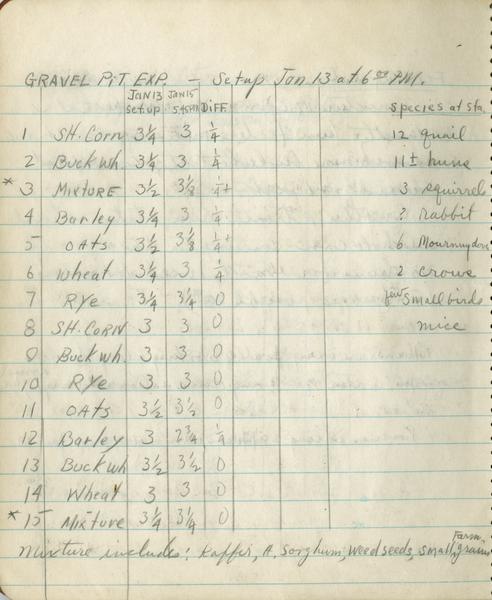 GRAVEL PIT EXP. — Setup Jan 13 at 6 00 P.M.
JAN 13 set.up JAN 15 5 45 PM DiFF species at sta.
1 SH. Corn 3 1/4 3 1/4 12 quail
2 Buck wh. 3 1/4 3 1/4 11± huns
* 3 MIXTURE 3 1/2 3 1/8 1/4+ 3 squirrels
4 Barley 3 1/4 3 1/4 ? rabbit
5 OATS 3 1/2 3 1/8 1/4+ 6 Mourning dove
6 Wheat 3 1/4 3 1/4 2 crows
7 RYe 3 1/4 3 1/4 0 few small birds
8 SH. CORN 3 3 0 mice
9 Buck wh. 3 3 0
10 RYe 3 3 0
11 OATS 3 1/2 3 1/2 0
12 Barley 3 2 3/4 1/4
13 Buck wh 3 1/2 3 1/2 0
14 Wheat 3 3 0
* 15 Mixture 3 1/4 3 1/4 0
Mixture includes: Kaffir, A. Sorghum, Weed seeds, small Farm grains